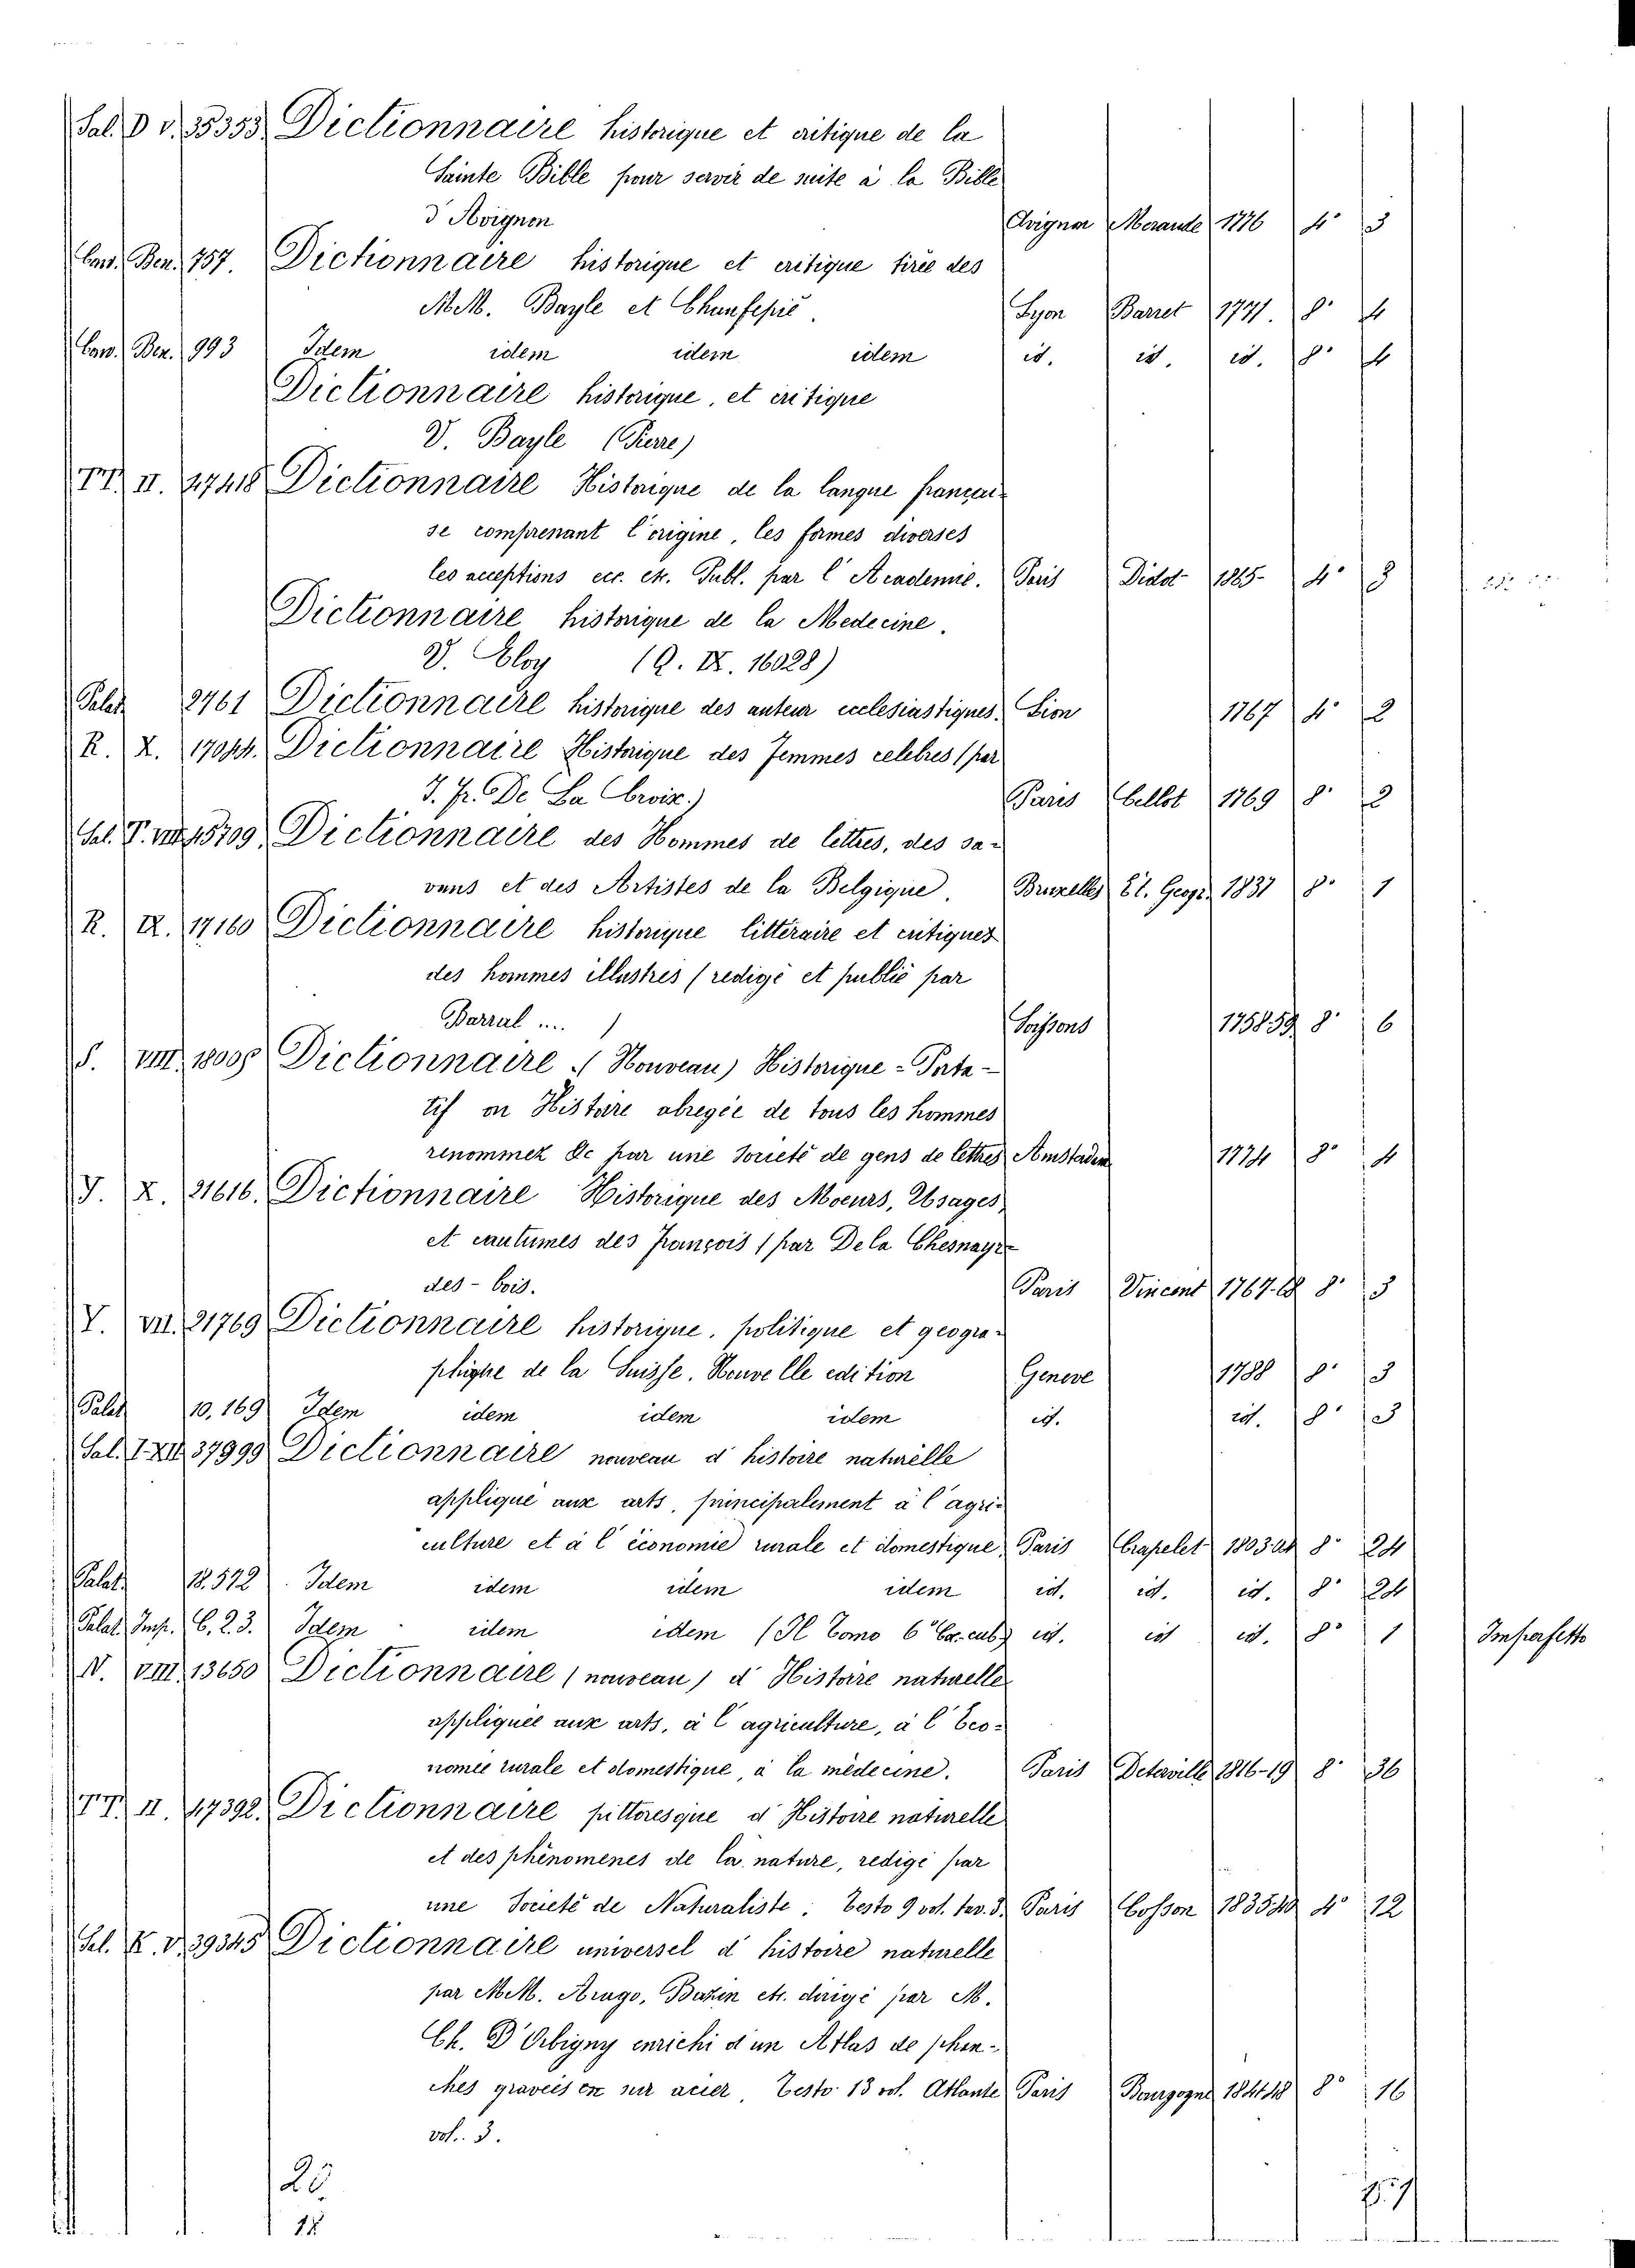 Sal. D v. 35353 Dictionnaire historique et critique de la
Sainte Bible pour servir de suite à la Bible
d'Avignon Avignon Merande 1776 4° 3
Con. Ben. 757. Dictionnaire historique et critique tirée des
M.M. Bayle et Chaufepié. Lyon Barret 1771. 8° 4
Con. Ben. 993 Idem idem idem idem id. id. id. 8° 4
Dictionnaire historique, et critique
V. Bayle (Pierre)
TT. II. 27418 Dictionnaire Historique de la langue françai
se comprenant l'origine, les formes diverses
les acceptions ecc. etc. Publ. par l'Academie. Paris Didot 1865- 4° 3
Dictionnaire historique de la Medecine.
V. Eloy (Q. IX. 16028)
Palat 2761 Dictionnaire historique des auteur ecclesiastiques. Lion 1767 4° 2
R. X. 17044. Dictionnaire Historique des femmes celebres (par
J. Fr. De La Croix.) Paris Cellot 1769 8° 2
Sal. T. 45709 Dictionnaire des Hommes de lettres, des sa-
vans et des Artistes de la Belgique. Bruxelles Et. Geogr. 1837 8° 1
R. IX. 17160 Dictionnaire historique littéraire et critiques
des hommes illustres (redigé et publié par
Barral ....) Soissons 1758.59 8° 6
S. VIII. 18008 Dictionnaire (Nouveau) Historique-Porta-
tif ou Histoire abregée de tous les hommes
renommez &c par une Société de gens de lettres Amstadem 1774 8° 4
J. X. 21616. Dictionnaire Historique des Moeurs, Usages,
et cautumes des François (par De la Chesnaye
des-bois. Paris Vincent 1767.68 8° 3
Y. VII. 21769 Dictionnaire historique, politique et geogra-
phique de la Suisse. Nouvelle edition Geneve 1788 8° 3
Palat 10.169 Idem idem idem idem id. id. 8° 3
Sal. I. XII 37999 Dictionnaire nouveau d'histoire naturelle
appliqué aux arts, principalement à l'agri-
culture et à l'économie rurale et domestique Paris Crapelet 1803.04 8° 24
Palat. 18.572. Idem idem idem idem id. id. id. 8° 24
Palat. Imp. C. 2.3. Idem idem idem (Il Tomo 6° id. id id. 8° 1 Imperfetto
N. VIII. 13650 Dictionnaire (nouveau) d'Histoire naturelle
appliquée aux arts, à l'agriculture, à l'Eco-
nomie rurale et domestique, à la médecine. Paris Deterville 1816-19 8° 36
TT. II. 27392. Dictionnaire pittoresque d'Histoire naturelle
et des phénomenes de la nature, redigé par
une Societé de Naturaliste. Testo 9 vol. tav. 3. Paris Cosson 1835.40 4° 12
Sal. K. V. 39345 Dictionnaire universel d'histoire naturelle
par M.M. Arago, Bazin etc. dirigé par M.
Ch. D'Orbigny enrichi d'un Atlas de phan-
ches graveés en sur acier, Testo 13 vol. Atlante Paris Bourgogne 1841.48 8° 16
vol. 3.